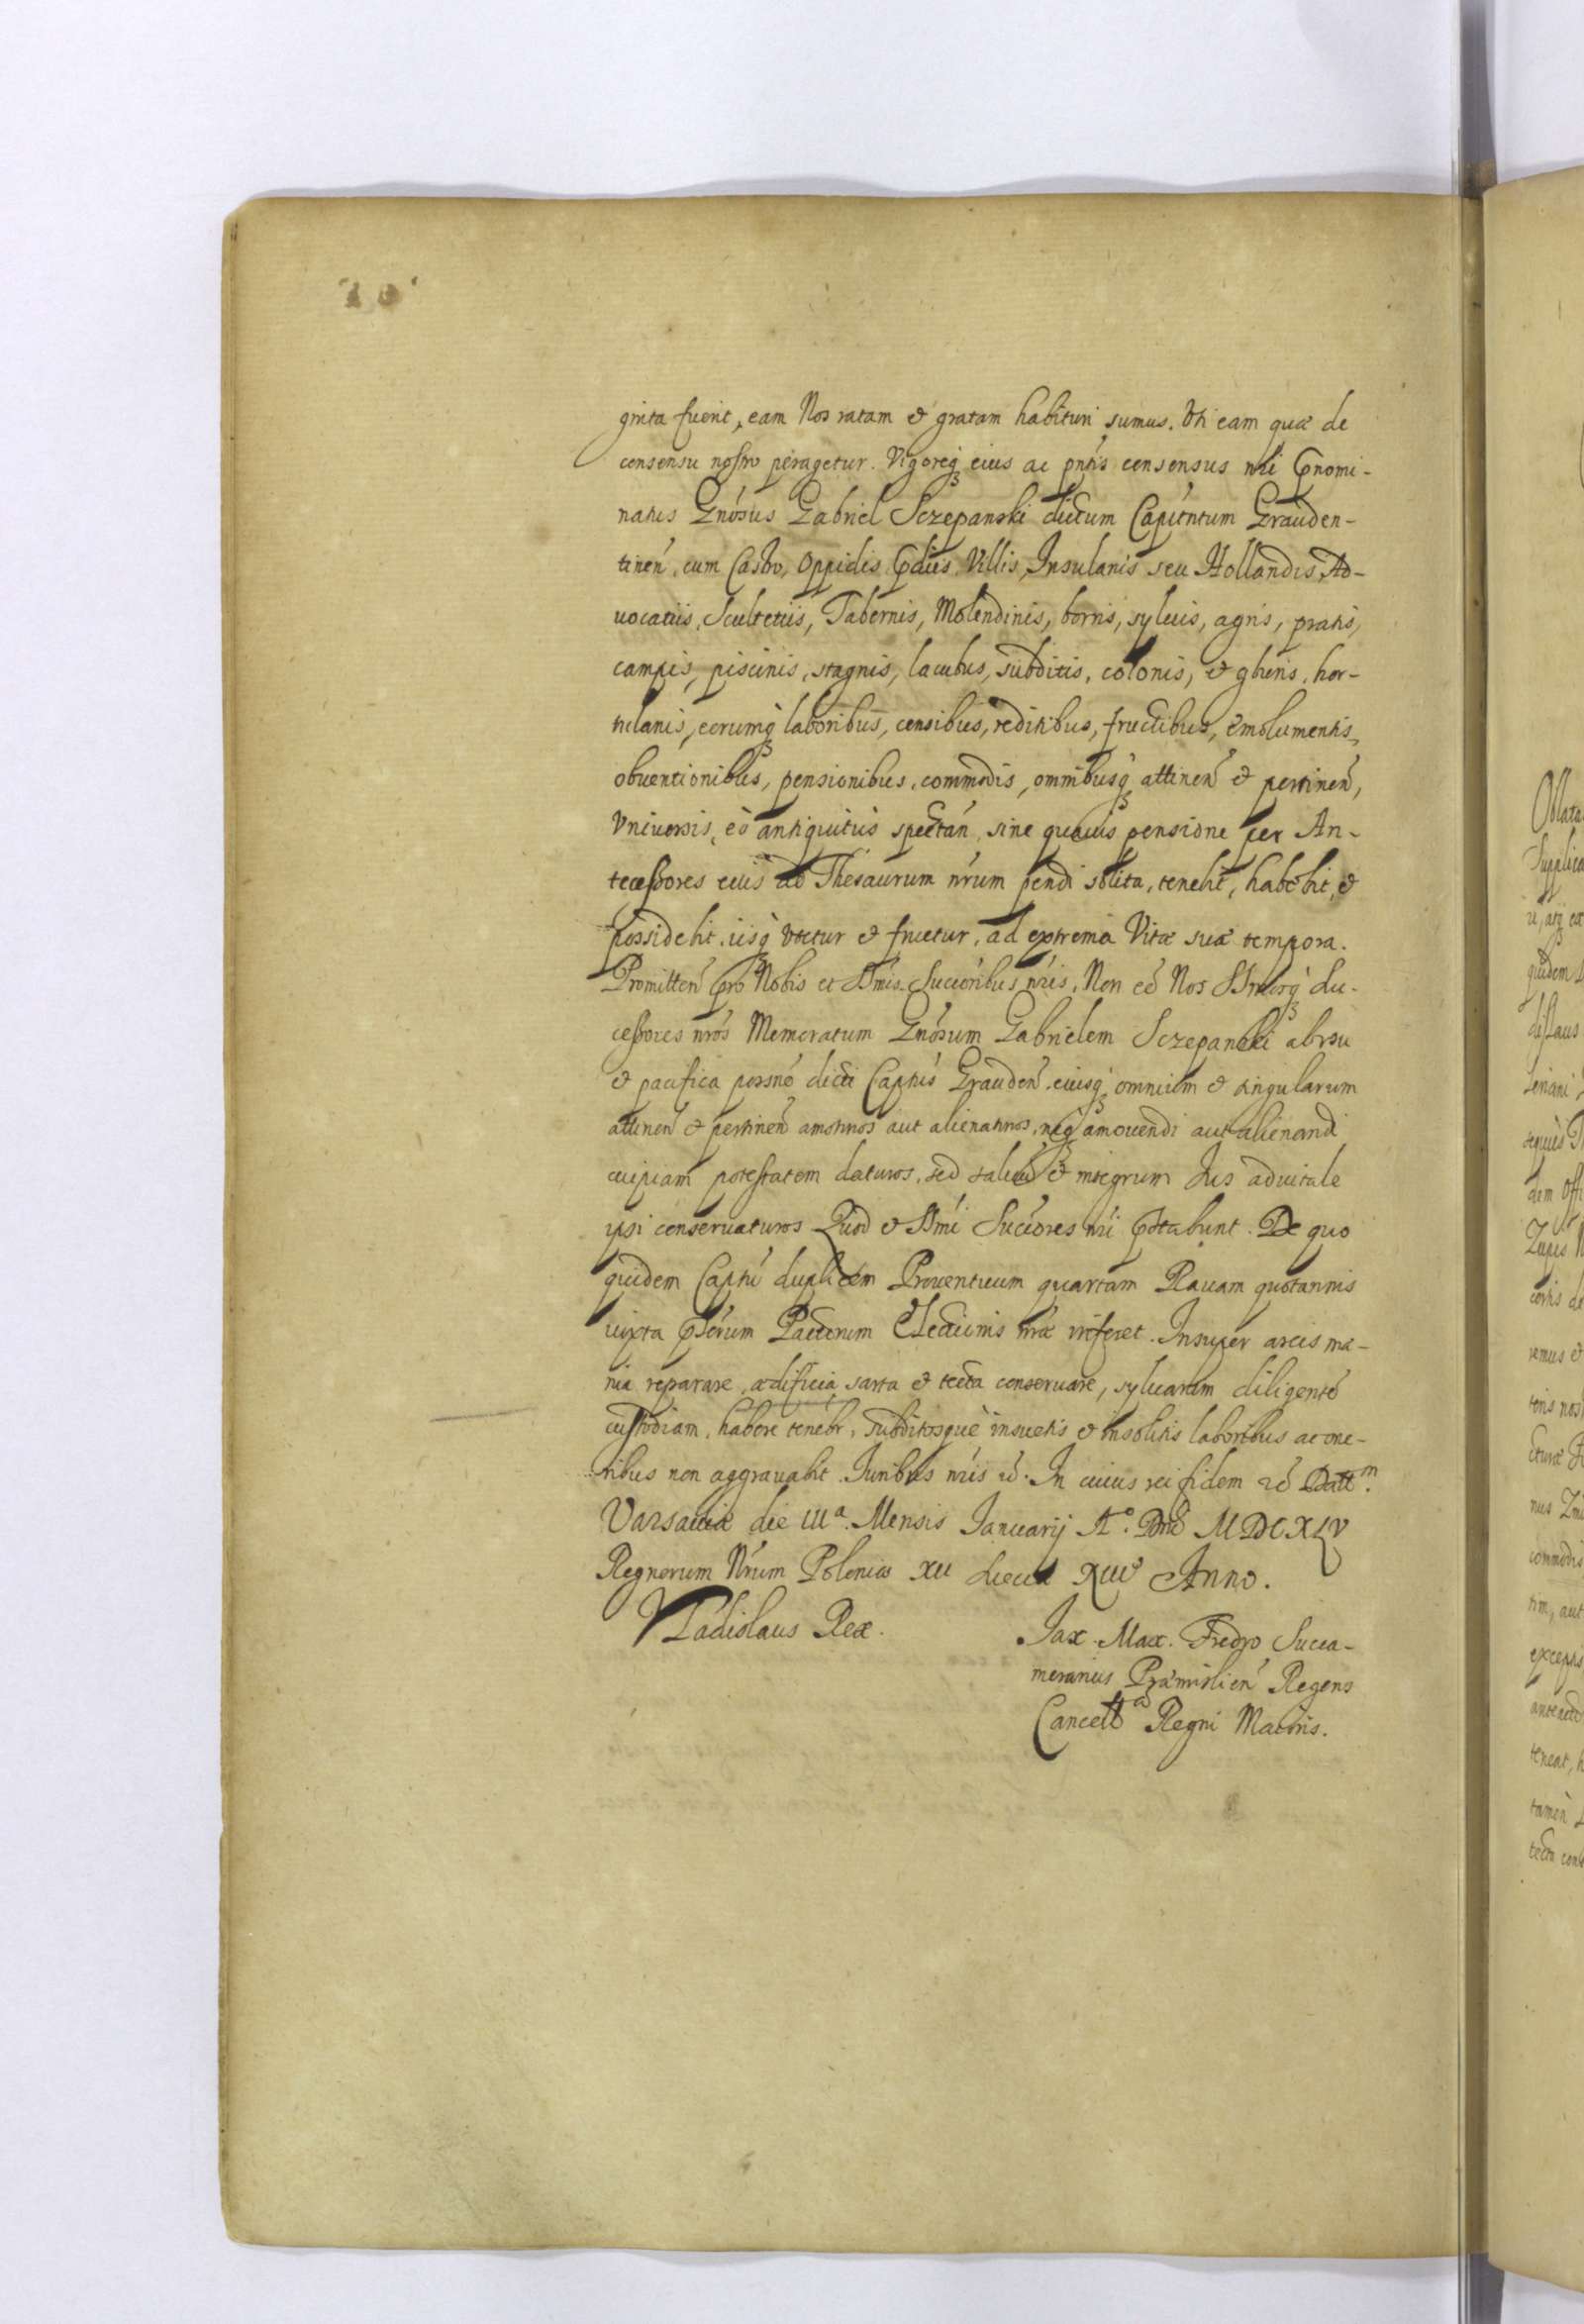 grita fuerit, eam Nos ratam et gratam habituri sumus. Uti eam quæ de
consensu nostro peragetur. Vigoreq eius ac pntis consensus nri pnomi-
natus Gnosus Gabriel Sczepanski dictum Capitntum Grauden-
tinen. cum Castro, Oppidis pdiis Villis, Insulanis seu Hollandis, Ad-
uocatiis, Scultetiis, Tabernis, Molendinis, borris, syluis, agris, pratis,
campis, piscinis, stagnis, lacubus, subditis, colonis, et ghtris, hor-
tulanis, eorumq laboribus, censibus, reditibus, fructibus, emolumentis,
obuentionibus, pensionibus, commodis, omnibusq attinen et pertinen,
Vniuersis, eò antiquitùs spectan, sine quauis pensione per An-
tecessores eius ad Thesaurum nrum pendi solita, tenebit, habebit, et
possidebit, iisq vtetur et fruetur, ad extrema Vitæ suæ tempora.
Promitten pro Nobis et Smis Succoribus nris, Non ee Nos Smosq Su-
cessores nros Memoratum Gnosum Gabrielem Sczepanski ab vsu
et pacifica possne dicti Captus Grauden. eiusq omnium et singularum
attinen et pertinen amoturos aut alienaturos, neq amouendi aut alienandi
cuipiam potestatem daturos, sed saluum et integrum Ius aduitale
ipsi conseruaturos Quod et Smi Succores nri pstabunt. De quo
quidem Captu duplicem Prouentuum quartam Rauam quotannis
iuxta pscrum Pactorum Electionis nræ inferet. Insuper arcis mæ-
nia reparare, ædificia sarta et tecta conseruare, syluarum diligente
custodiam, habere tenebr, subditosque insuetis et insolitis laboribus ac one-
ribus non aggrauabit. Iuribus nris etc. In cuius rei fidem etc Datt m.
Varsauiæ die IIIa. Mensis Ianuarij Ao. Dni MDCXLV
Regnorum Nrum Poloniæ XII Sueciæ XIIIo Anno.
Vladislaus Rex.
Jax. Max. Fredro Succa-
merarius Præmislien Regens
Cancell a Regni Maioris.